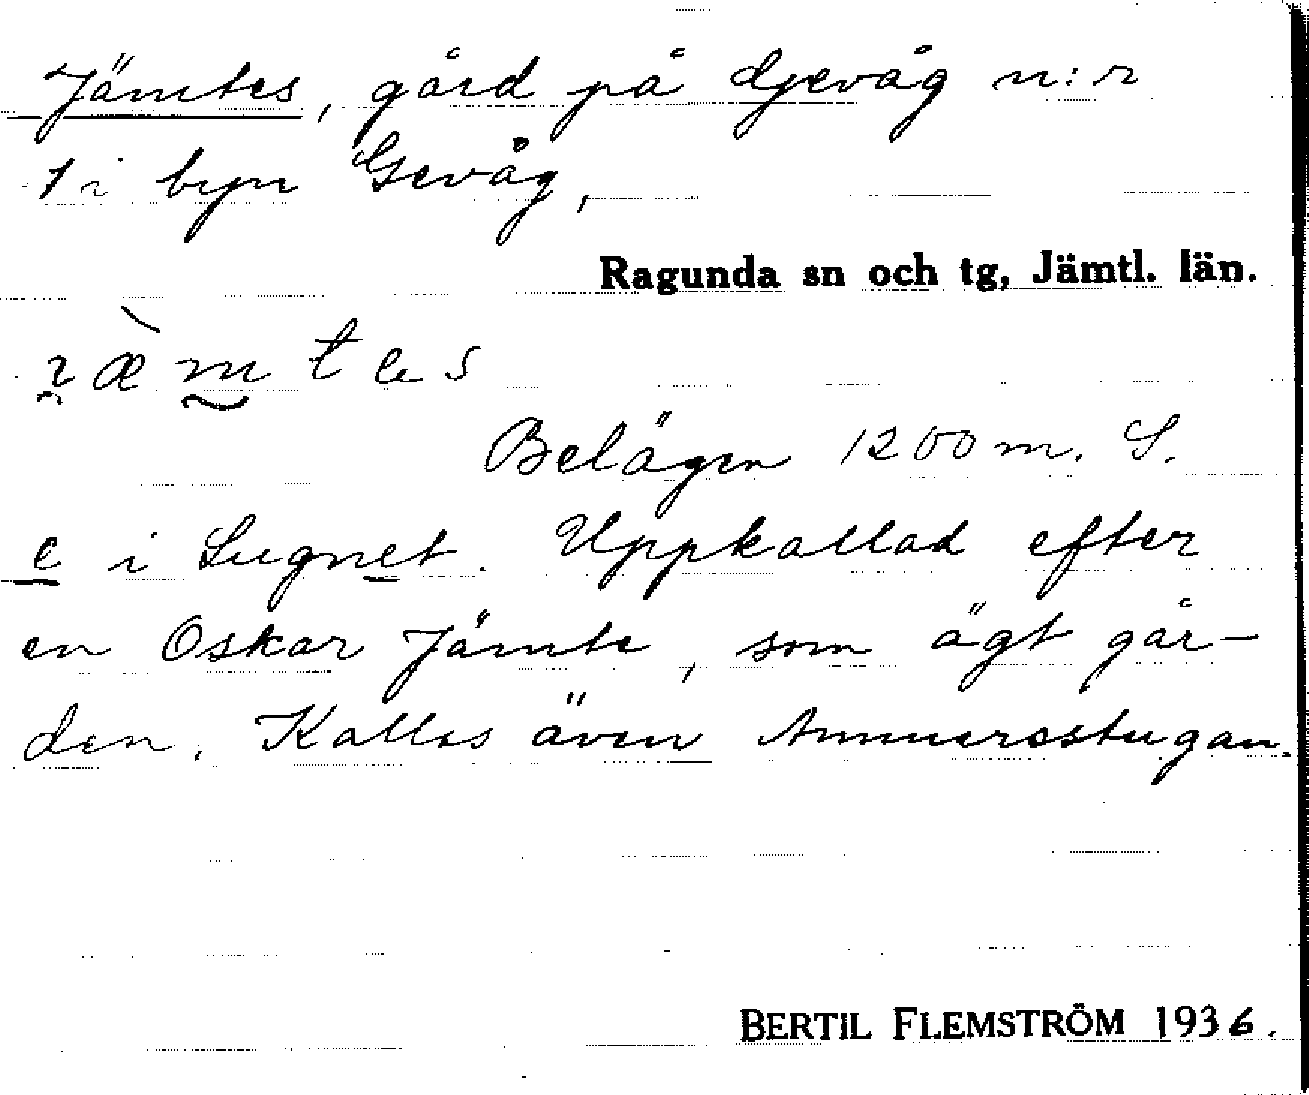 Jämtes, gård på Djevåg n:r
1 i byn Gevåg,
Ragunda sn och tg, Jämtl. län.
Belägen 1200 m. S.
e i Lugnet. Uppkallad efter
en Oskar Jämte, som ägt går-
den. Kallas även Ammersstugan.
BERTIL FLEMSTRÖM 1936.